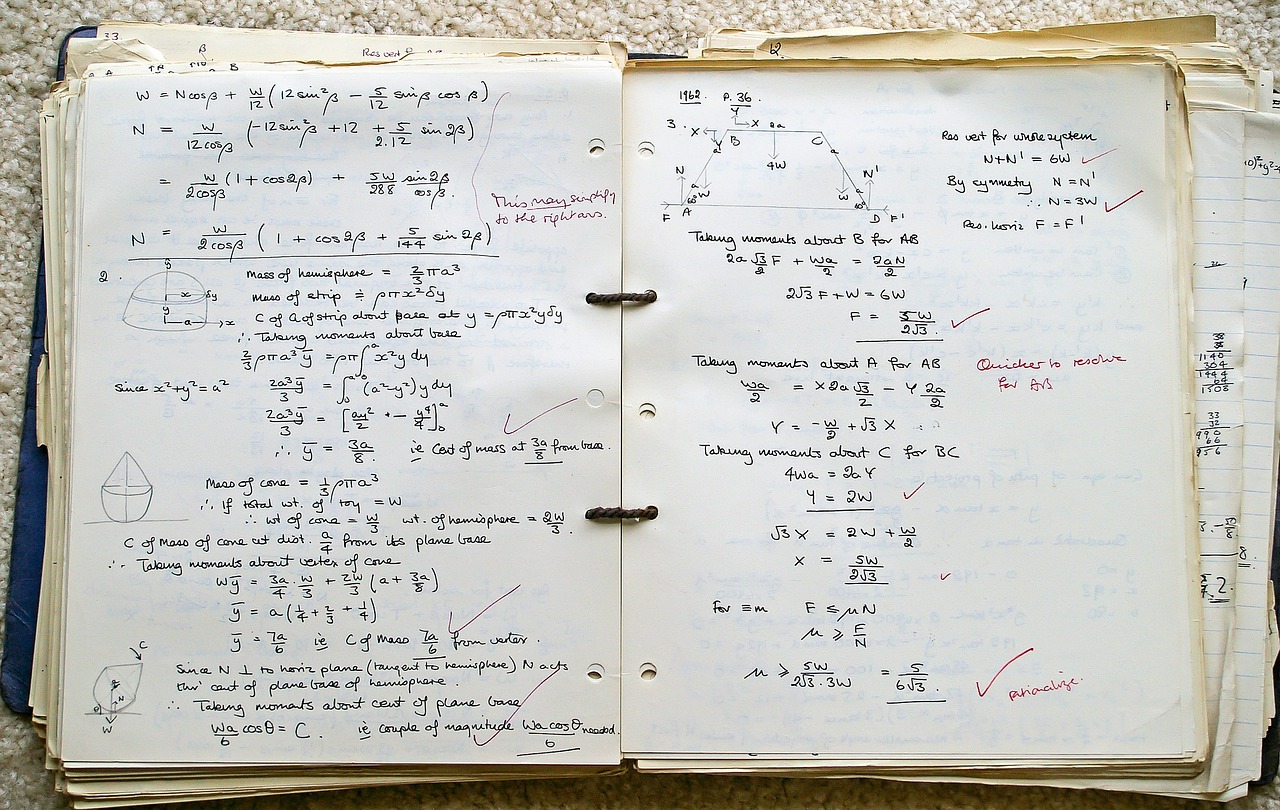 33.
β
Res vert
B
W = N cos β + W/12 (12 sin²β − 5/12 sin β cos β)
N = W/12cosβ (−12 sin²β + 12 + 5/2.12 sin 2β)
= W/2cosβ (1 + cos 2β) + 5W/288 sin 2β/cos β.
This may simplify
to the right ans.
N = W/2cosβ (1 + cos 2β + 5/144 sin 2β)
2.
y
x δy
y
a x
Mass of hemisphere = 2/3 πa³
Mass of strip ≑ ρπx²δy
C of G of strip about base at y = ρπx²yδy
∴ Taking moments about base
2/3 ρπa³ȳ = ρπ∫₀ᵃ x²y dy
Since x²+y² = a² 2a³ȳ/3 = ∫₀ᵃ (a²−y²) y dy
2a³ȳ/3 = [ay²/2 − y⁴/4]₀ᵃ
∴ ȳ = 3a/8 ie Cent of mass at 3a/8 from base.
Mass of cone = 1/3 ρπa³
∴ If total wt. of toy = W
∴ wt of cone = W/3 wt. of hemisphere = 2W/3.
C of Mass of cone at dist. a/4 from its plane base
∴ Taking moments about vertex of cone
Wȳ = 3a/4 . W/3 + 2W/3 (a + 3a/8)
ȳ = a(1/4 + 2/3 + 1/4)
ȳ = 7a/6 ie C of Mass 7a/6 from vertex.
C
N
θ
W
Since N ⊥ to horiz plane (tangent to hemisphere) N acts
thro' cent of plane base of hemisphere.
∴ Taking moments about cent of plane base
Wa/6 cos θ = C. ie couple of magnitude Wa cos θ/6 needed.
12.
1962. P. 36.
3.
Y
X X 2a
B C
Y a a
4W
N a a N'
W W
60° 60°
F A D F'
Res vert for whole system
N+N' = 6W
By symmetry N = N'
∴ N = 3W
Res. horiz F = F'
Taking moments about B for AB
2a √3/2 F + Wa/2 = 2aN/2
2√3 F + W = 6W
F = 5W/2√3.
Taking moments about A for AB
Quicker to resolve
for AB
Wa/2 = X 2a √3/2 − Y 2a/2
Y = −W/2 + √3 X
Taking moments about C for BC
4Wa = 2aY
Y = 2W
√3 X = 2W + W/2
X = 5W/2√3
For ≡m F ≤ μN
μ ≥ F/N
μ ≥ 5W/2√3.3W = 5/6√3.
rationalize.
38
38
1140
304
1444
64
1508
33
32
990
66
956
8.
2.